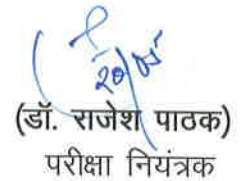 20/05
(डॉ. राजेश पाठक)
परीक्षा नियंत्रक